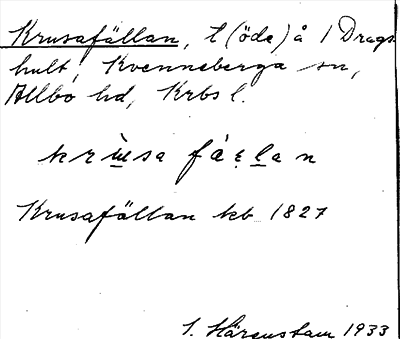 Krusafällan, l (öde) å 1 Drags-
hult, Kvenneberga sn,
Allbo hd, Krbs l.
Krusafällan kb 1827
S. Härenstam 1933